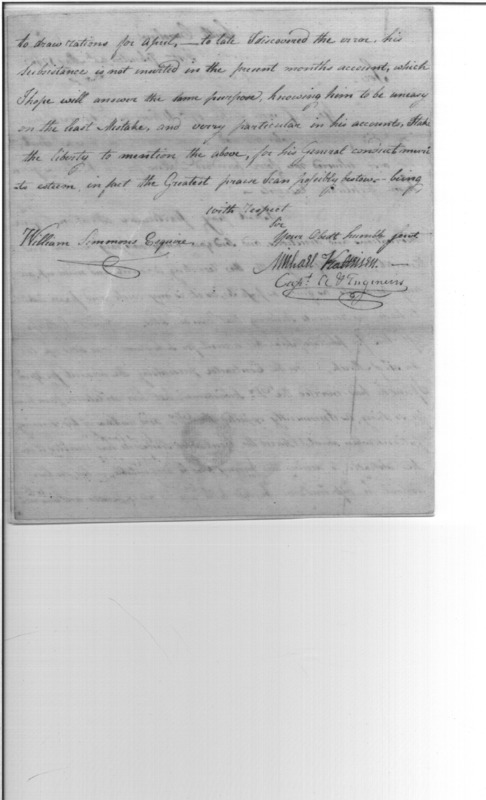 to draw rations for april, — to late I discovered the error, his
subsistance is not inserted in the present months account, which
I hope will answer the same purpose, knowing him to be uneasy
on the least Mistake, and verry particular in his accounts, I take
the liberty to mention the above, for his General conduct merits
esteem, in fact the Greatest praise I can possibly bestow — being
with respect
Sir
Your Obedt humble servt
William Simmons Esquire
Michael Kalteisen
Capt. A & Engineers